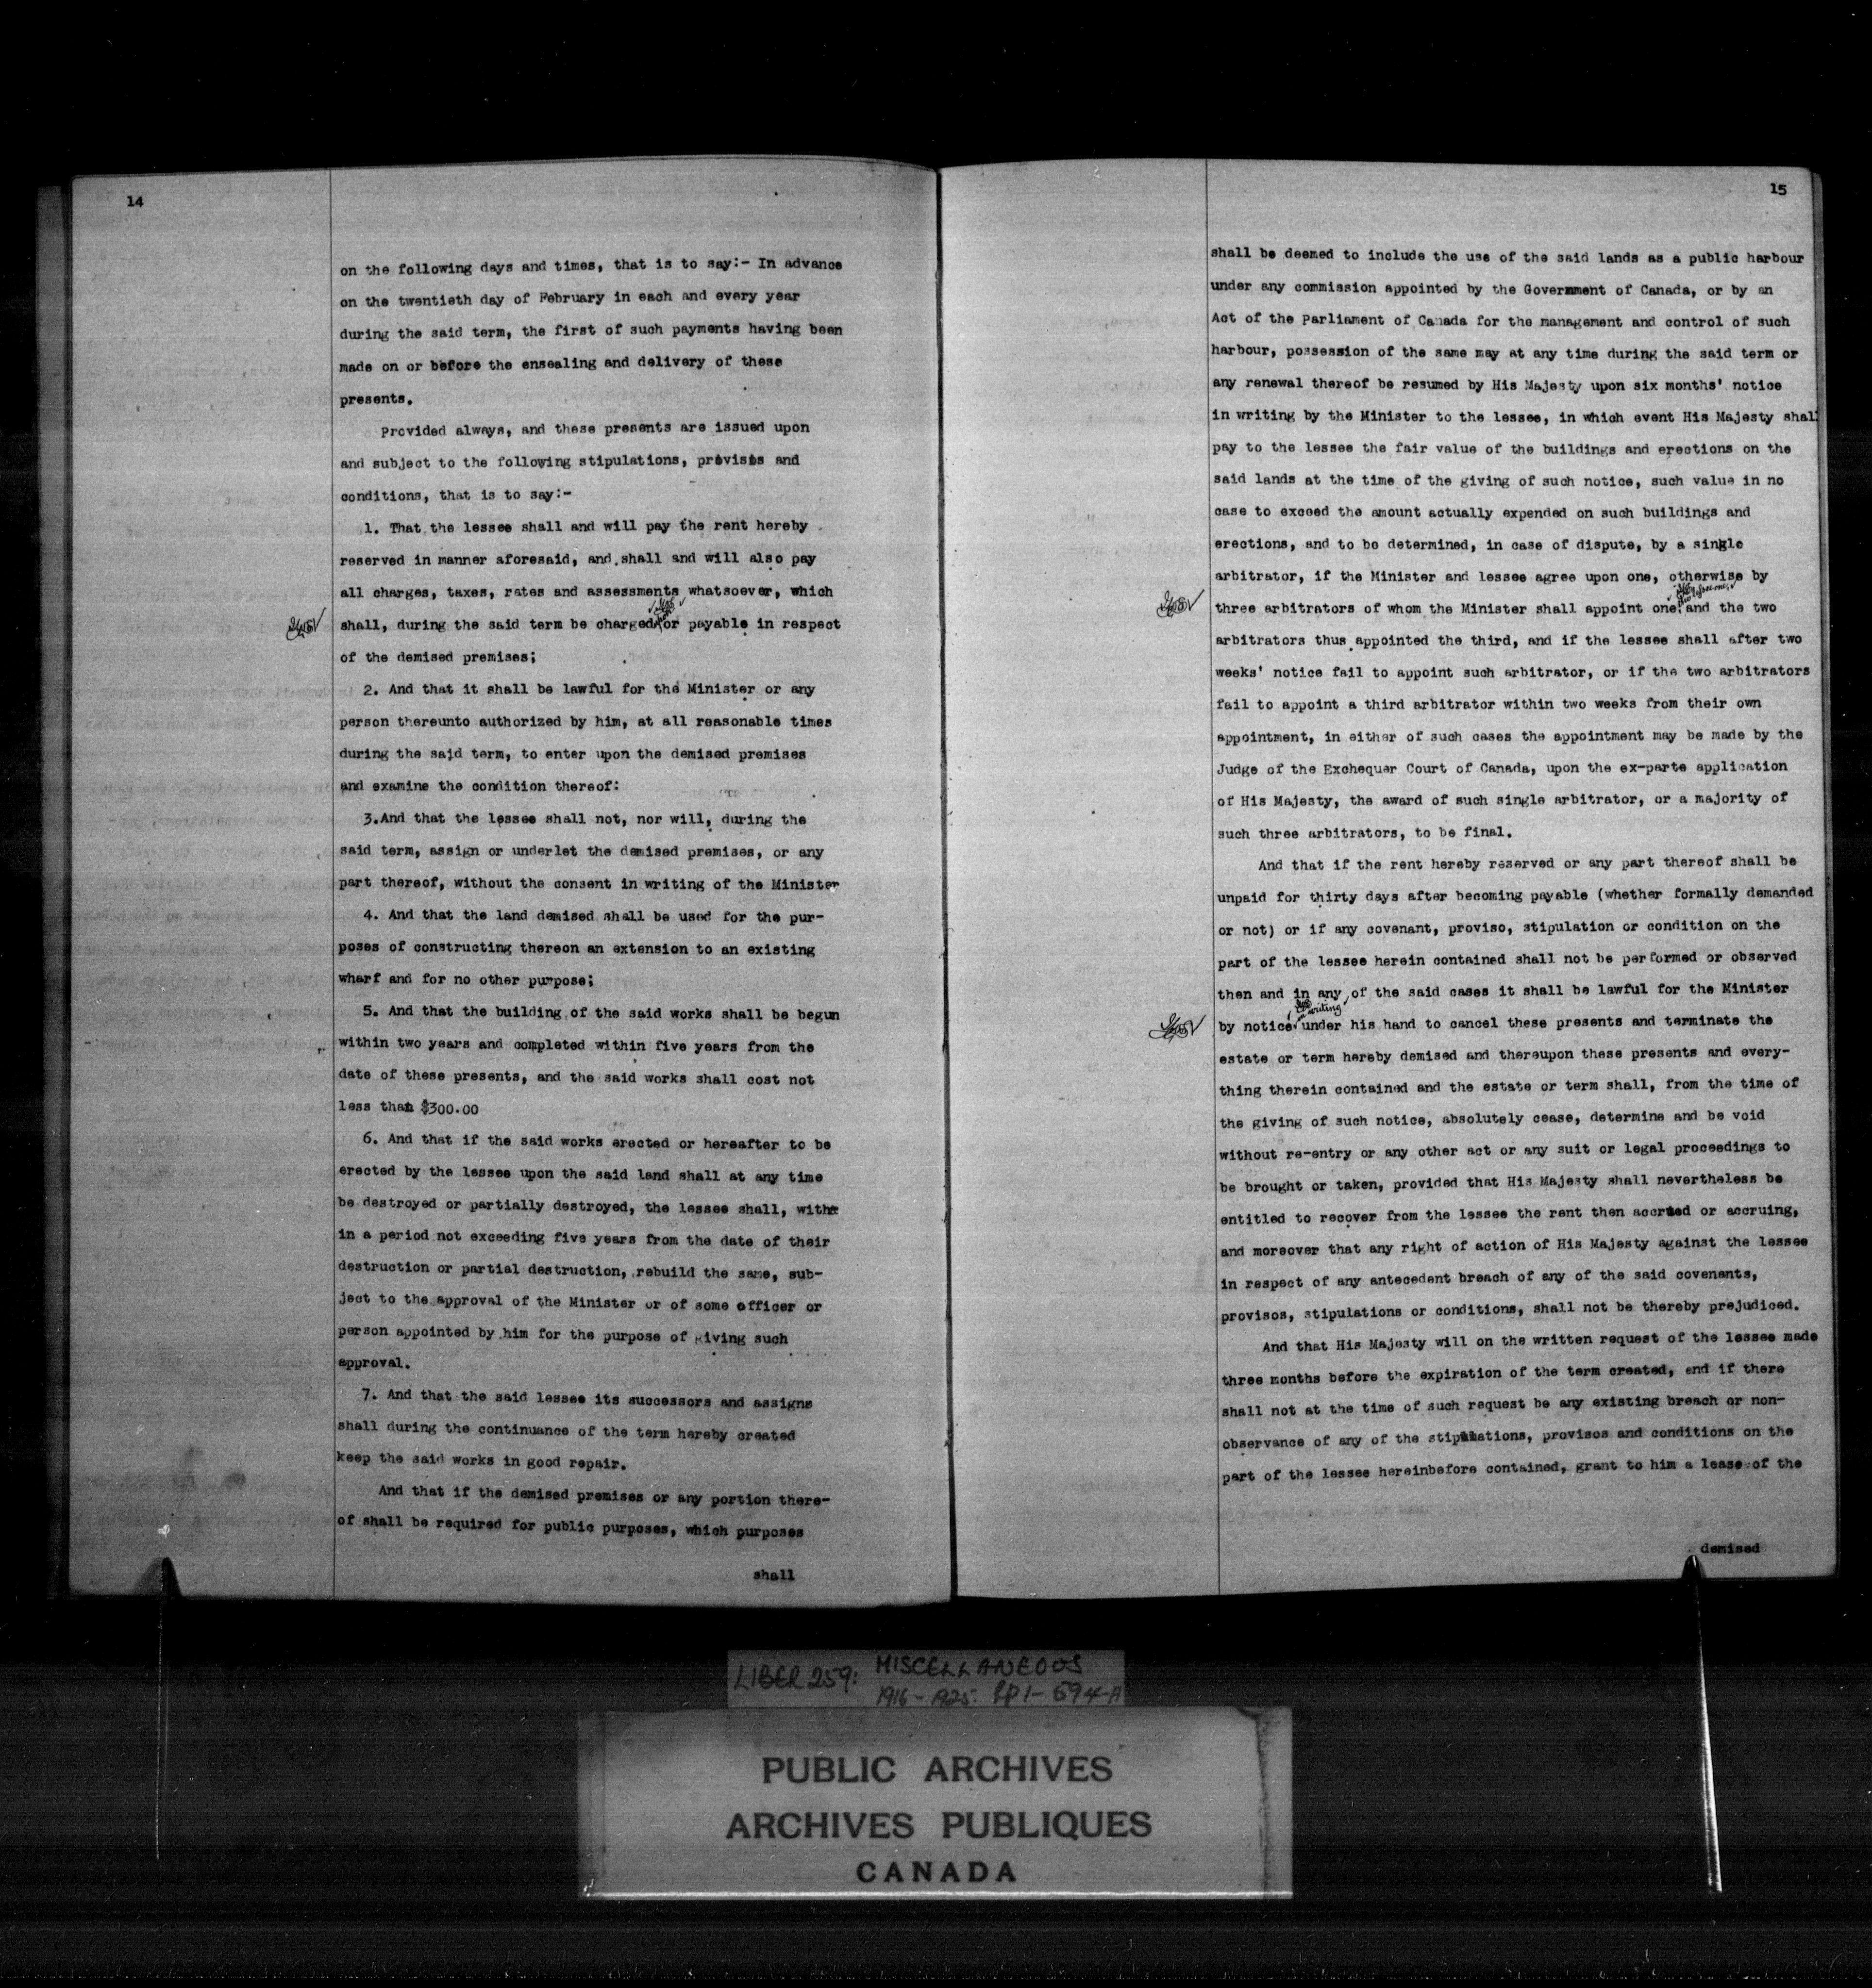 14
on the following days and times, that is to say:- In advance
on the twentieth day of February in each and every year
during the said term, the first of such payments having been
made on or before the ensealing and delivery of these
presents.
Provided always, and these presents are issued upon
and subject to the following stipulations, provisos and
conditions, that is to say:-
1. That the lessee shall and will pay the rent hereby
reserved in manner aforesaid, and shall and will also pay
all charges, taxes, rates and assessments whatsoever, which
shall, during the said term be charged or payable in respect
of the demised premises;
2. And that it shall be lawful for the Minister or any
person thereunto authorized by him, at all reasonable times
during the said term, to enter upon the demised premises
and examine the condition thereof:
3.And that the lessee shall not, nor will, during the
said term, assign or underlet the demised premises, or any
part thereof, without the consent in writing of the Minister
4. And that the land demised shall be used for the pur-
poses of constructing thereon an extension to an existing
wharf and for no other purpose;
5. And that the building of the said works shall be begun
within two years and completed within five years from the
date of these presents, and the said works shall cost not
less than $300.00
6. And that if the said works erected or hereafter to be
erected by the lessee upon the said land shall at any time
be destroyed or partially destroyed, the lessee shall, with-
in a period not exceeding five years from the date of their
destruction or partial destruction, rebuild the same, sub-
ject to the approval of the Minister or of some officer or
person appointed by him for the purpose of giving such
approval.
7. And that the said lessee its successors and assigns
shall during the continuance of the term hereby created
keep the said works in good repair.
And that if the demised premises or any portion there-
of shall be required for public purposes, which purposes
shall
15
shall be deemed to include the use of the said lands as a public harbour
under any commission appointed by the Government of Canada, or by an
Act of the Parliament of Canada for the management and control of such
harbour, possession of the same may at any time during the said term or
any renewal thereof be resumed by His Majesty upon six months' notice
in writing by the Minister to the lessee, in which event His Majesty shall
pay to the lessee the fair value of the buildings and erections on the
said lands at the time of the giving of such notice, such value in no
case to exceed the amount actually expended on such buildings and
erections, and to be determined, in case of dispute, by a single
arbitrator, if the Minister and lessee agree upon one, otherwise by
three arbitrators of whom the Minister shall appoint one and the two
arbitrators thus appointed the third, and if the lessee shall after two
weeks' notice fail to appoint such arbitrator, or if the two arbitrators
fail to appoint a third arbitrator within two weeks from their own
appointment, in either of such cases the appointment may be made by the
Judge of the Exchequer Court of Canada, upon the ex-parte application
of His Majesty, the award of such single arbitrator, or a majority of
such three arbitrators, to be final.
And that if the rent hereby reserved or any part thereof shall be
unpaid for thirty days after becoming payable (whether formally demanded
or not) or if any covenant, proviso, stipulation or condition on the
part of the lessee herein contained shall not be performed or observed
then and in any of the said cases it shall be lawful for the Minister
in writing
by notice under his hand to cancel these presents and terminate the
estate or term hereby demised and thereupon these presents and every-
thing therein contained and the estate or term shall, from the time of
the giving of such notice, absolutely cease, determine and be void
without re-entry or any other act or any suit or legal proceedings to
be brought or taken, provided that His Majesty shall nevertheless be
entitled to recover from the lessee the rent then accrued or accruing,
and moreover that any right of action of His Majesty against the lessee
in respect of any antecedent breach of any of the said covenants,
provisos, stipulations or conditions, shall not be thereby prejudiced.
And that His Majesty will on the written request of the lessee made
three months before the expiration of the term created, and if there
shall not at the time of such request be any existing breach or non-
observance of any of the stipulations, provisos and conditions on the
part of the lessee hereinbefore contained, grant to him a lease of the
demised
LIBER 259: MISCELLANEOUS
1916-1925: PP 1-594-A
PUBLIC ARCHIVES
ARCHIVES PUBLIQUES
CANADA